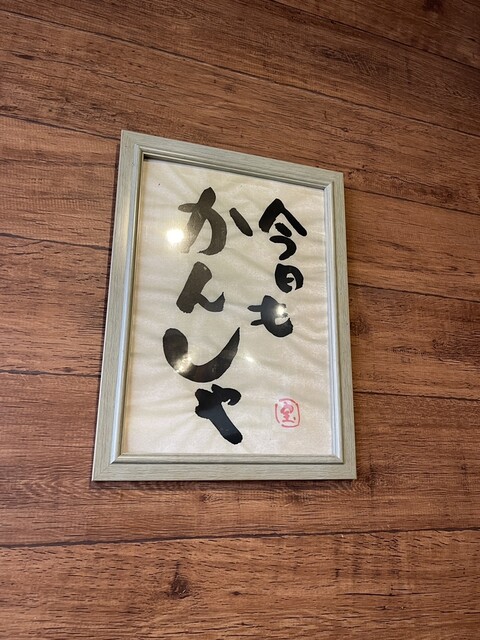 今日も
かんしゃ